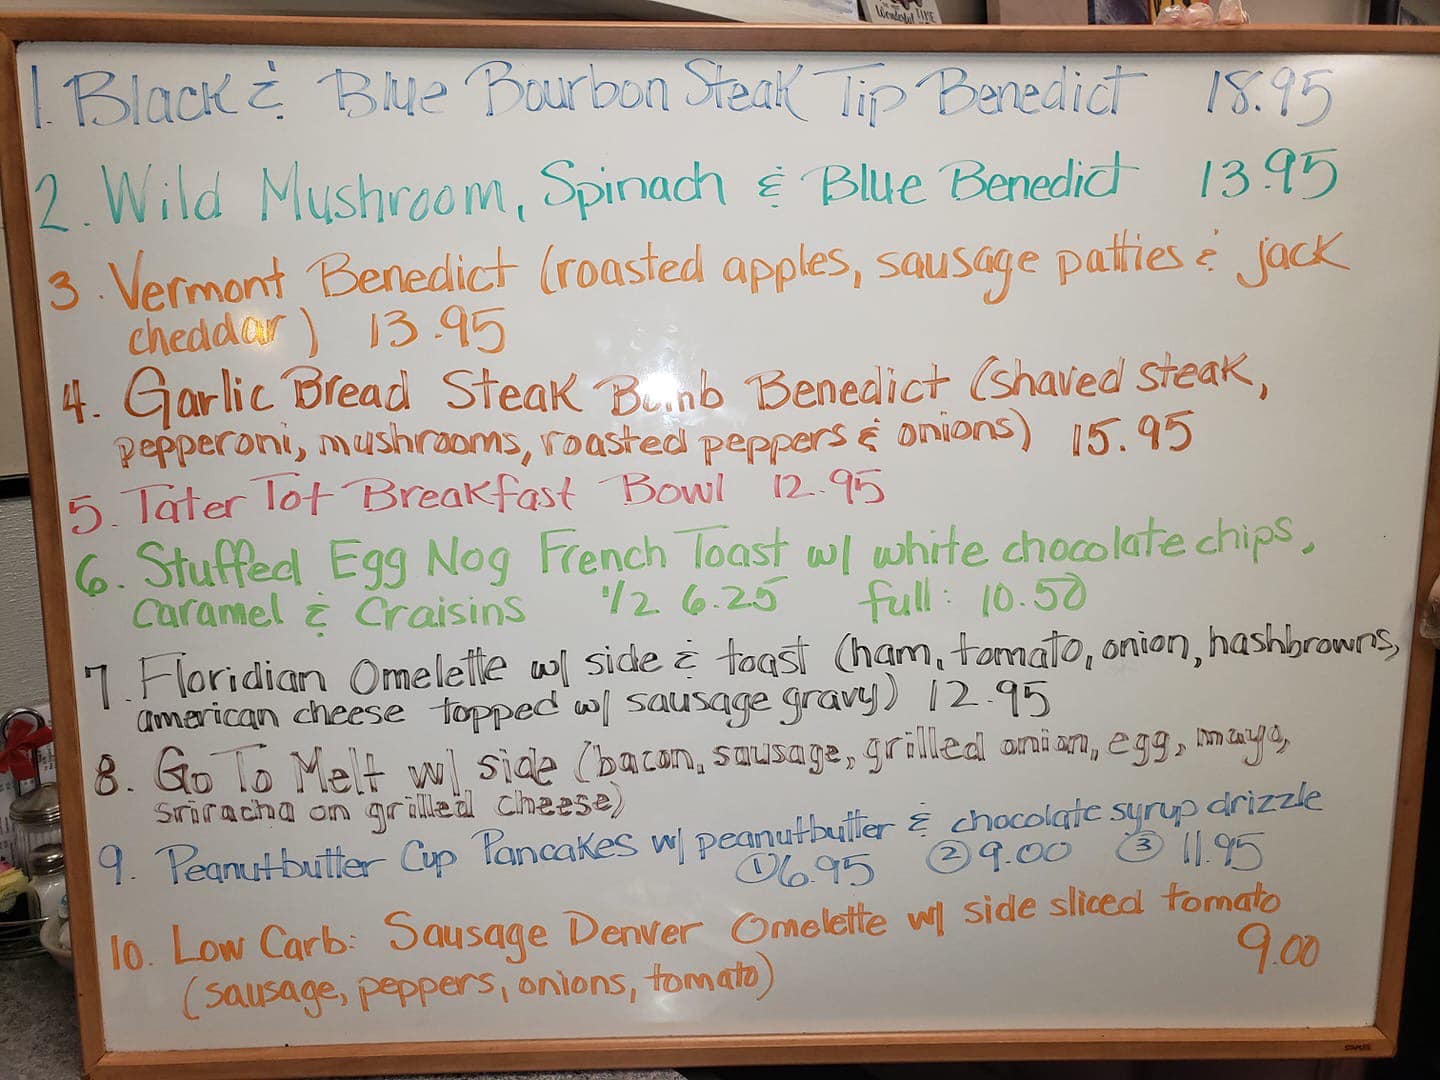 Wonderful LIFE
1. Black & Blue Bourbon Steak Tip Benedict 18.95
2. Wild Mushroom, Spinach & Blue Benedict 13.95
3. Vermont Benedict (roasted apples, sausage patties & jack
cheddar) 13.95
4. Garlic Bread Steak Bomb Benedict (shaved steak,
pepperoni, mushrooms, roasted peppers & onions) 15.95
5. Tater Tot Breakfast Bowl 12.95
6. Stuffed Egg Nog French Toast w/ white chocolate chips,
caramel & Craisins 1/2 6.25 full: 10.50
7. Floridian Omelette w/ side & toast (ham, tomato, onion, hashbrowns,
american cheese topped w/ sausage gravy) 12.95
8. Go To Melt w/ side (bacon, sausage, grilled onion, egg, mayo,
sriracha on grilled cheese)
9. Peanutbutter Cup Pancakes w/ peanutbutter & chocolate syrup drizzle
① 6.95 ② 9.00 ③ 11.95
10. Low Carb: Sausage Denver Omelette w/ side sliced tomato
(sausage, peppers, onions, tomato) 9.00
STAPLES